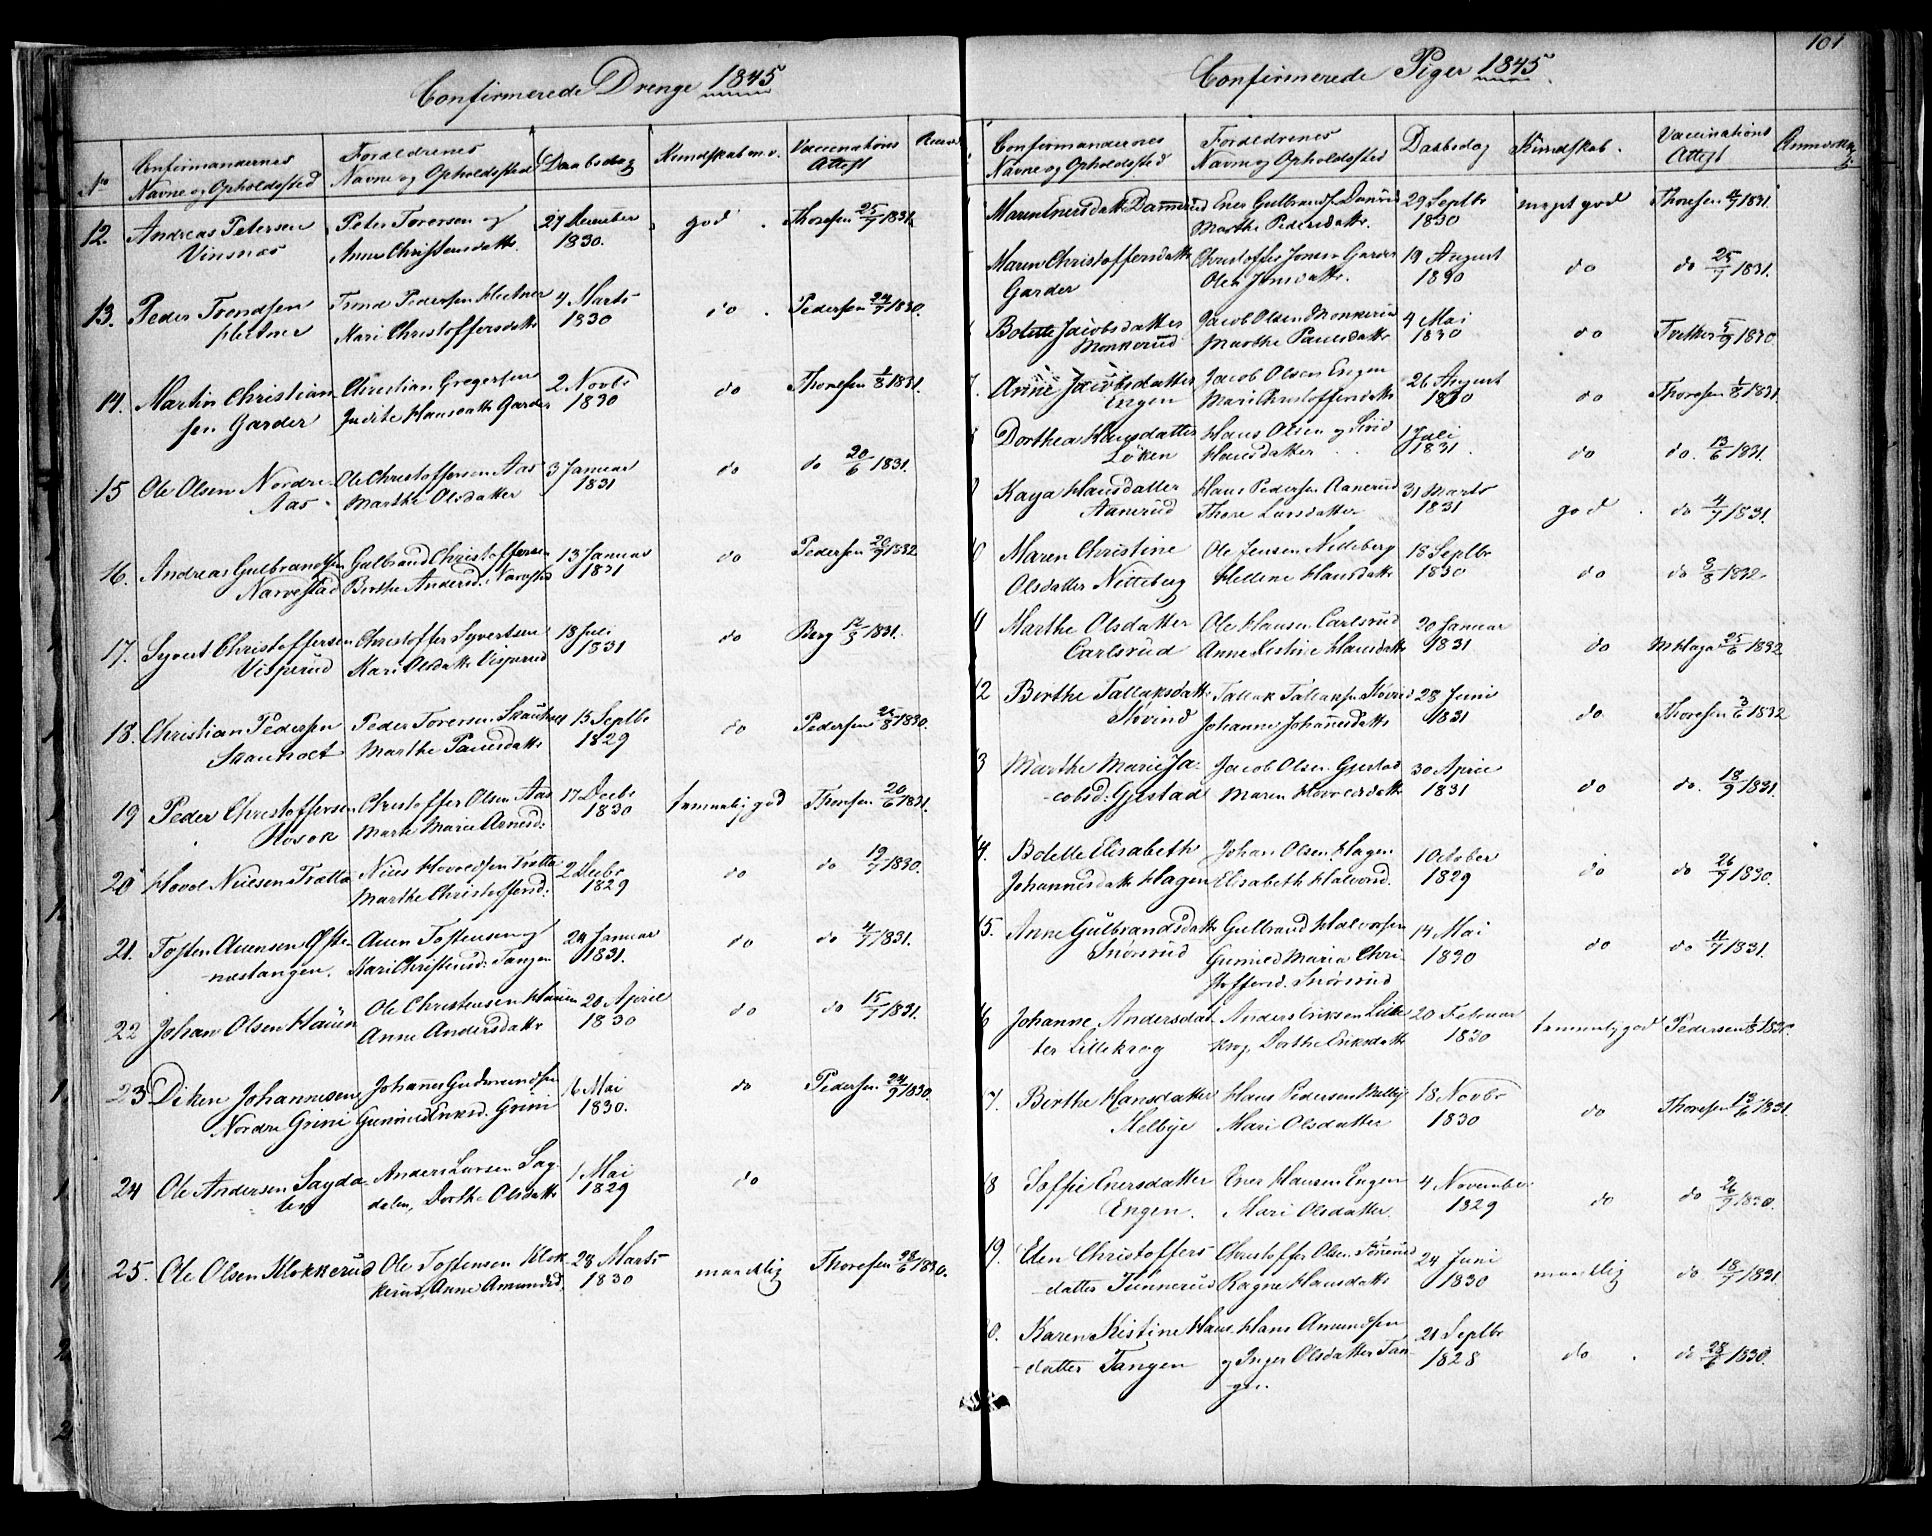 Confirmerede Drenge 1845
No Confirmandernes Navne og Opholdssted Forældrenes Navne og Opholdssted Daabsdag Kundskab m.v. Vaccinations Attest
12. Andreas Petersen Peter Torersen og 27 December god Thoresen 25/7 1831.
Vinsnæs Anne Christensdatter 1830.
13. Peder Trondsen Trond Pedersen 4 Marts do Pedersen 24/9 1830.
Kari Christoffersdatter 1830
14. Martin Christian- Christian Gregersen 2 Novbr do Thoresen 1/8 1831.
sen Garder Hansdatter Garder 1830
15 Ole Olsen Nordre Ole Christoffersen Aas 3 Januar do do 20/6 1831.
Aas Marthe Olsdatter 1831
16. Andreas Gulbrandsen Gulbrand Christoffersen 13 Januar do Pedersen 20/9 1832
Narvestad Berthe Andersd. Narvestad 1831
17. Syvert Christoffersen Christoffer Syvertsen 18 Juli do Berg 12/9 1831.
Visperud Kari Olsdatter Visperud 1831
18. Christian Pedersen Peder Torersen Skauholt 13 Septbr do Pedersen 25/8 1830.
Skauholt Marthe Paulsdatter 1829
19 Peder Christoffersen Christoffer Olsen Aas 17 Decbr temmelig god Thoresen 20/6 1831.
Marte Marie Arnesd: 1830
20 Hovel Nielsen Trætta Niels Hovelsen Trætta 2 Decbr do do 19/7 1830.
Marthe Christoffersd: 1829
21. Tosten Auensen Ofste- Auen Tostensen og 24 Januar do do 4/7 1831.
næstangen. Kari Christensd: Tangen 1831.
22 Johan Olsen Hauen Ole Christensen Hauen 20 April do do 15/7 1831.
Anne Andersdatter 1830
23 Johannesen Johannes Gudmundsen 6 Mai do Pedersen 24/9 1830.
Nordre Grini Gunnild Eriksd. Grini 1830.
24 Ole Andersen Sagda- Anders Larsen Sag- 1 Mai do
len dalen, Dorthe Olsdatter 1829
25. Ole Olsen Klokkerud Ole Tostensen Klok- 28 Marts maadelig Thoresen 28/6 1830.
kerud, Anne Amundsd. 1830
101
Confirmerede Piger 1845.
Confirmandernes Navne og Opholdssted Forældrenes Navne og Opholdssted Daabsdag Kundskab. Vaccinations Attest
Maren Enersdatter Dammerud Ener Gulbrands. Damrud 29 Septbr meget god Thoresen 4/7 1831.
Marthe Pedersdatter. 1830
Maren Christoffersdatter Christoffer Jonsen Garder 19 August do do 25/7 1831.
Garder Olea Jensdatter. 1830
Bolette Jacobsdatter Jacob Olsen Monkerud 4 Mai do 5/9 1830
Monkerud Marthe Paulsdatter 1830
7. Anne Jacobsdatter Jacob Olsen Engen 26 August do Thoresen 1/8 1831
Engen Mari Christoffersdatter 1830
8 Dorthea Hansdatter Hans Olsen og Siri 1 Juli do do. 13/6 1831.
Löken Hansdatter 1831.
9 Kaya Hansdatter Hans Pedersen Aanerud 31 Marts god do 4/7 1831.
Aanerud Thore Larsdatter 1831
10 Maren Christine Ole Jensen Nitteberg 18 Septbr do do 3/8 1832
Olsdatter Nitteberg Hellene Hansdatter 1830
11 Marthe Olsdatter Ole Hansen Carlsrud 20 Januar do M Haga 25/6 1832
Carlsrud Anne Kistine Hansdatter 1831
12 Birthe Tallaksdatter Tallak Tallaksen Hövind 28 Juni do Thoresen 3/6 1832
Hövind Johanne Johannesdatter 1831
13 Marthe Marie Ja- Jacob Olsen Gjestad 30 April do do. 18/9 1831.
cobsd: Gjestad Maren Halvorsdatter 1831
14. Bolette Elisabeth Johan Olsen Hagen 1 October do do 26/7 1830.
Johannesdatter Hagen Elisabeth Halvorsd. 1829
15. Anne Gulbrandsdatter Gulbrand Halvorsen 14 Mai do do 4/7 1831.
Snörsrud Gunnild Maria Chri- 1830
stoffersd. Snörsrud
16 Johanne Andersdat- Anders Eriksen Lille- 20 Februar temmelig god Pedersen 1/8 1830.
ter Lillekrog krog, Dorthe Eriksdatter 1830
17. Berthe Hansdatter Hans Pedersen Melbye 18 Novbr do Thoresen 13/6 1831.
Melbye Mari Olsdatter 1830
18 Soffie Enersdatter Ener Hansen Engen 4 November do do 26/7 1830.
Engen. Mari Olsdatter. 1829
19. Elen Christoffers- Christoffer Olsen Tunnerud 24 Juni maadelig do 18/7 1831
datter Tunnerud Ragne Hansdatter 1830
20. Karen Kistine Hans- Hans Amundsen 21 Septbr do do 28/6 1830.
datter Tangen og Inger Olsdatter Tan- 1828
gen.